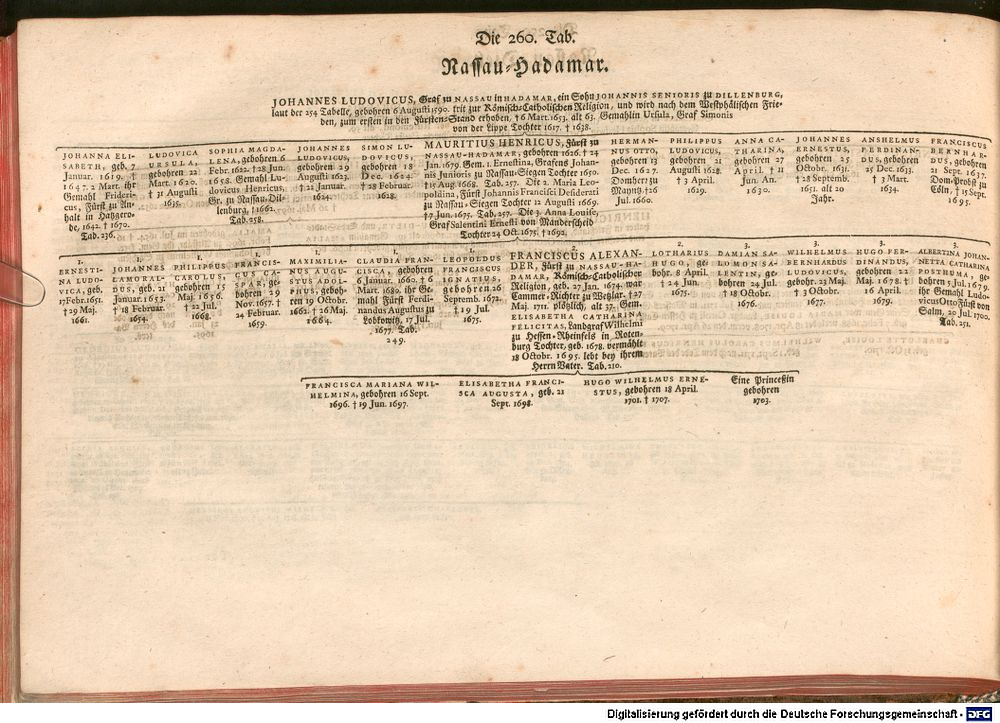 Die 260. Tab.
Nassau-Hadamar.
JOHANNES LUDOVICUS, Graf zu NASSAU in HADAMAR, ein Sohn JOHANNIS SENIORIS zu DILLENBURG,
laut der 254 Tabelle, gebohren 6 Augusti 1590. trit zur Römisch-Catholischen Religion, und wird nach dem Westphälischen Frie-
den, zum ersten in den Fürsten-Stand erhoben, † 6 Mart. 1653. alt 63. Gemahlin Ursula, Graf Simonis
von der Lippe Tochter 1617. † 1638.
JOHANNA ELI-
SABETH, geb. 7
Januar. 1619. †
1647. 2 Mart. ihr
Gemahl Frideri-
cus, Fürst zu An-
halt in Hatzgero-
de, 1642. † 1670.
Tab. 236.
LUDOVICA
URSULA,
gebohren 22
Mart. 1620.
† 31 Augusti
1635.
SOPHIA MAGDA-
LENA, gebohren 6
Febr. 1622. † 28 Jun.
1658. Gemahl Lu-
dovicus Henricus,
Gr. zu Nassau-Dil-
lenburg, † 1662.
Tab. 258.
JOHANNES
LUDOVICUS,
gebohren 29
Augusti 1623.
† 21 Januar.
1624.
SIMON LU-
DOVICUS,
gebohren 18
Dec. 1624.
† 28 Februar.
1628.
MAURITIUS HENRICUS, Fürst zu
NASSAU-HADAMAR, gebohren 1626. † 24
Jan. 1679. Gem. 1. Ernestina, Grafens Johan-
nis Junioris zu Nassau-Siegen Tochter 1650.
† 15 Aug. 1668. Tab. 257. Die 2. Maria Leo-
poldina, Fürst Johannis Francisci Desiderati
zu Nassau-Siegen Tochter 12 Augusti 1669.
† 7 Jun. 1675. Tab. 257. Die 3. Anna Louise,
Graf Salentini Ernesti von Manderscheid
Tochter 24 Oct. 1675. † 1692.
HERMAN-
NUS OTTO,
gebohren 13
Dec. 1627.
Domherr zu
Mayntz, † 26
Jul. 1660.
PHILIPPUS
LUDOVICUS,
gebohren 21
Augusti 1628.
† 3 April.
1629.
ANNA CA-
THARINA,
gebohren 27
April. † 11
Jun. An.
1630.
JOHANNES
ERNESTUS,
gebohren 25
Octobr. 1631.
† 28 Septemb.
1651. alt 20
Jahr.
ANSHELMUS
FERDINAN-
DUS, gebohren
15 Dec. 1633.
† 3 Mart.
1634.
FRANCISCUS
BERNHAR-
DUS, gebohren
21 Sept. 1637.
Dom-Probst zu
Cöln, † 15 Sept.
1695.
1.
ERNESTI-
NA LUDO-
VICA, geb.
17 Febr. 1651.
† 29 Maj.
1661.
1.
JOHANNES
LAMORAL-
DUS, geb. 21
Januar. 1653.
† 18 Februar.
1654.
1.
PHILIPPUS
CAROLUS,
gebohren 15
Maj. 1656.
† 22 Jul.
1668.
1.
FRANCIS-
CUS CA-
SPAR, ge-
bohren 29
Nov. 1657. †
24 Februar.
1659.
1.
MAXIMILIA-
NUS AUGU-
STUS ADOL-
PHUS, geboh-
ren 19 Octobr.
1662. † 26 Maj.
1664.
1.
CLAUDIA FRAN-
CISCA, gebohren
6 Januar. 1660. † 6
Mart. 1680. ihr Ge-
mahl Fürst Ferdi-
nandus Augustus zu
Lobkowitz, 17 Jul.
1677. Tab.
249.
1.
LEOPOLDUS
FRANCISCUS
IGNATIUS,
gebohren 26
Septemb. 1672.
† 19 Jul.
1675.
2.
FRANCISCUS ALEXAN-
DER, Fürst zu NASSAU-HA-
DAMAR, Römisch-Catholischer
Religion, geb. 27 Jan. 1674. war
Cammer-Richter zu Wetzlar. † 27
Maj. 1711. plötzlich, alt 37. Gem.
ELISABETHA CATHARINA
FELICITAS, Landgraf Wilhelmi
zu Hessen-Rheinfels in Roten-
burg Tochter, geb. 1678. vermählt
18 Octobr. 1695. lebt bey ihrem
Herrn Vater. Tab. 210.
2.
LOTHARIUS
HUGO, ge-
bohr. 8 April.
† 24 Jun.
1675.
3.
DAMIAN SA-
LOMON SA-
LENTIN, ge-
bohren 24 Jul.
† 18 Octobr.
1676.
3.
WILHELMUS
BERNHARDUS
LUDOVICUS,
gebohr. 23 Maj.
† 3 Octobr.
1677.
3.
HUGO FER-
DINANDUS,
gebohren 22
Maj. 1678. †
16 April.
1679.
3.
ALBERTINA JOHAN-
NETTA CATHARINA
POSTHUMA, ge-
bohren 5 Jul. 1679.
ihr Gemahl Ludo-
vicus Otto Fürst von
Salm, 20 Jul. 1700.
Tab. 251.
FRANCISCA MARIANA WIL-
HELMINA, gebohren 16 Sept.
1696. † 19 Jun. 1697.
ELISABETHA FRANCI-
SCA AUGUSTA, geb. 21
Sept. 1698.
HUGO WILHELMUS ERNE-
STUS, gebohren 18 April.
1701. † 1707.
Eine Princeßin
gebohren
1703.
Digitalisierung gefördert durch die Deutsche Forschungsgemeinschaft - DFG